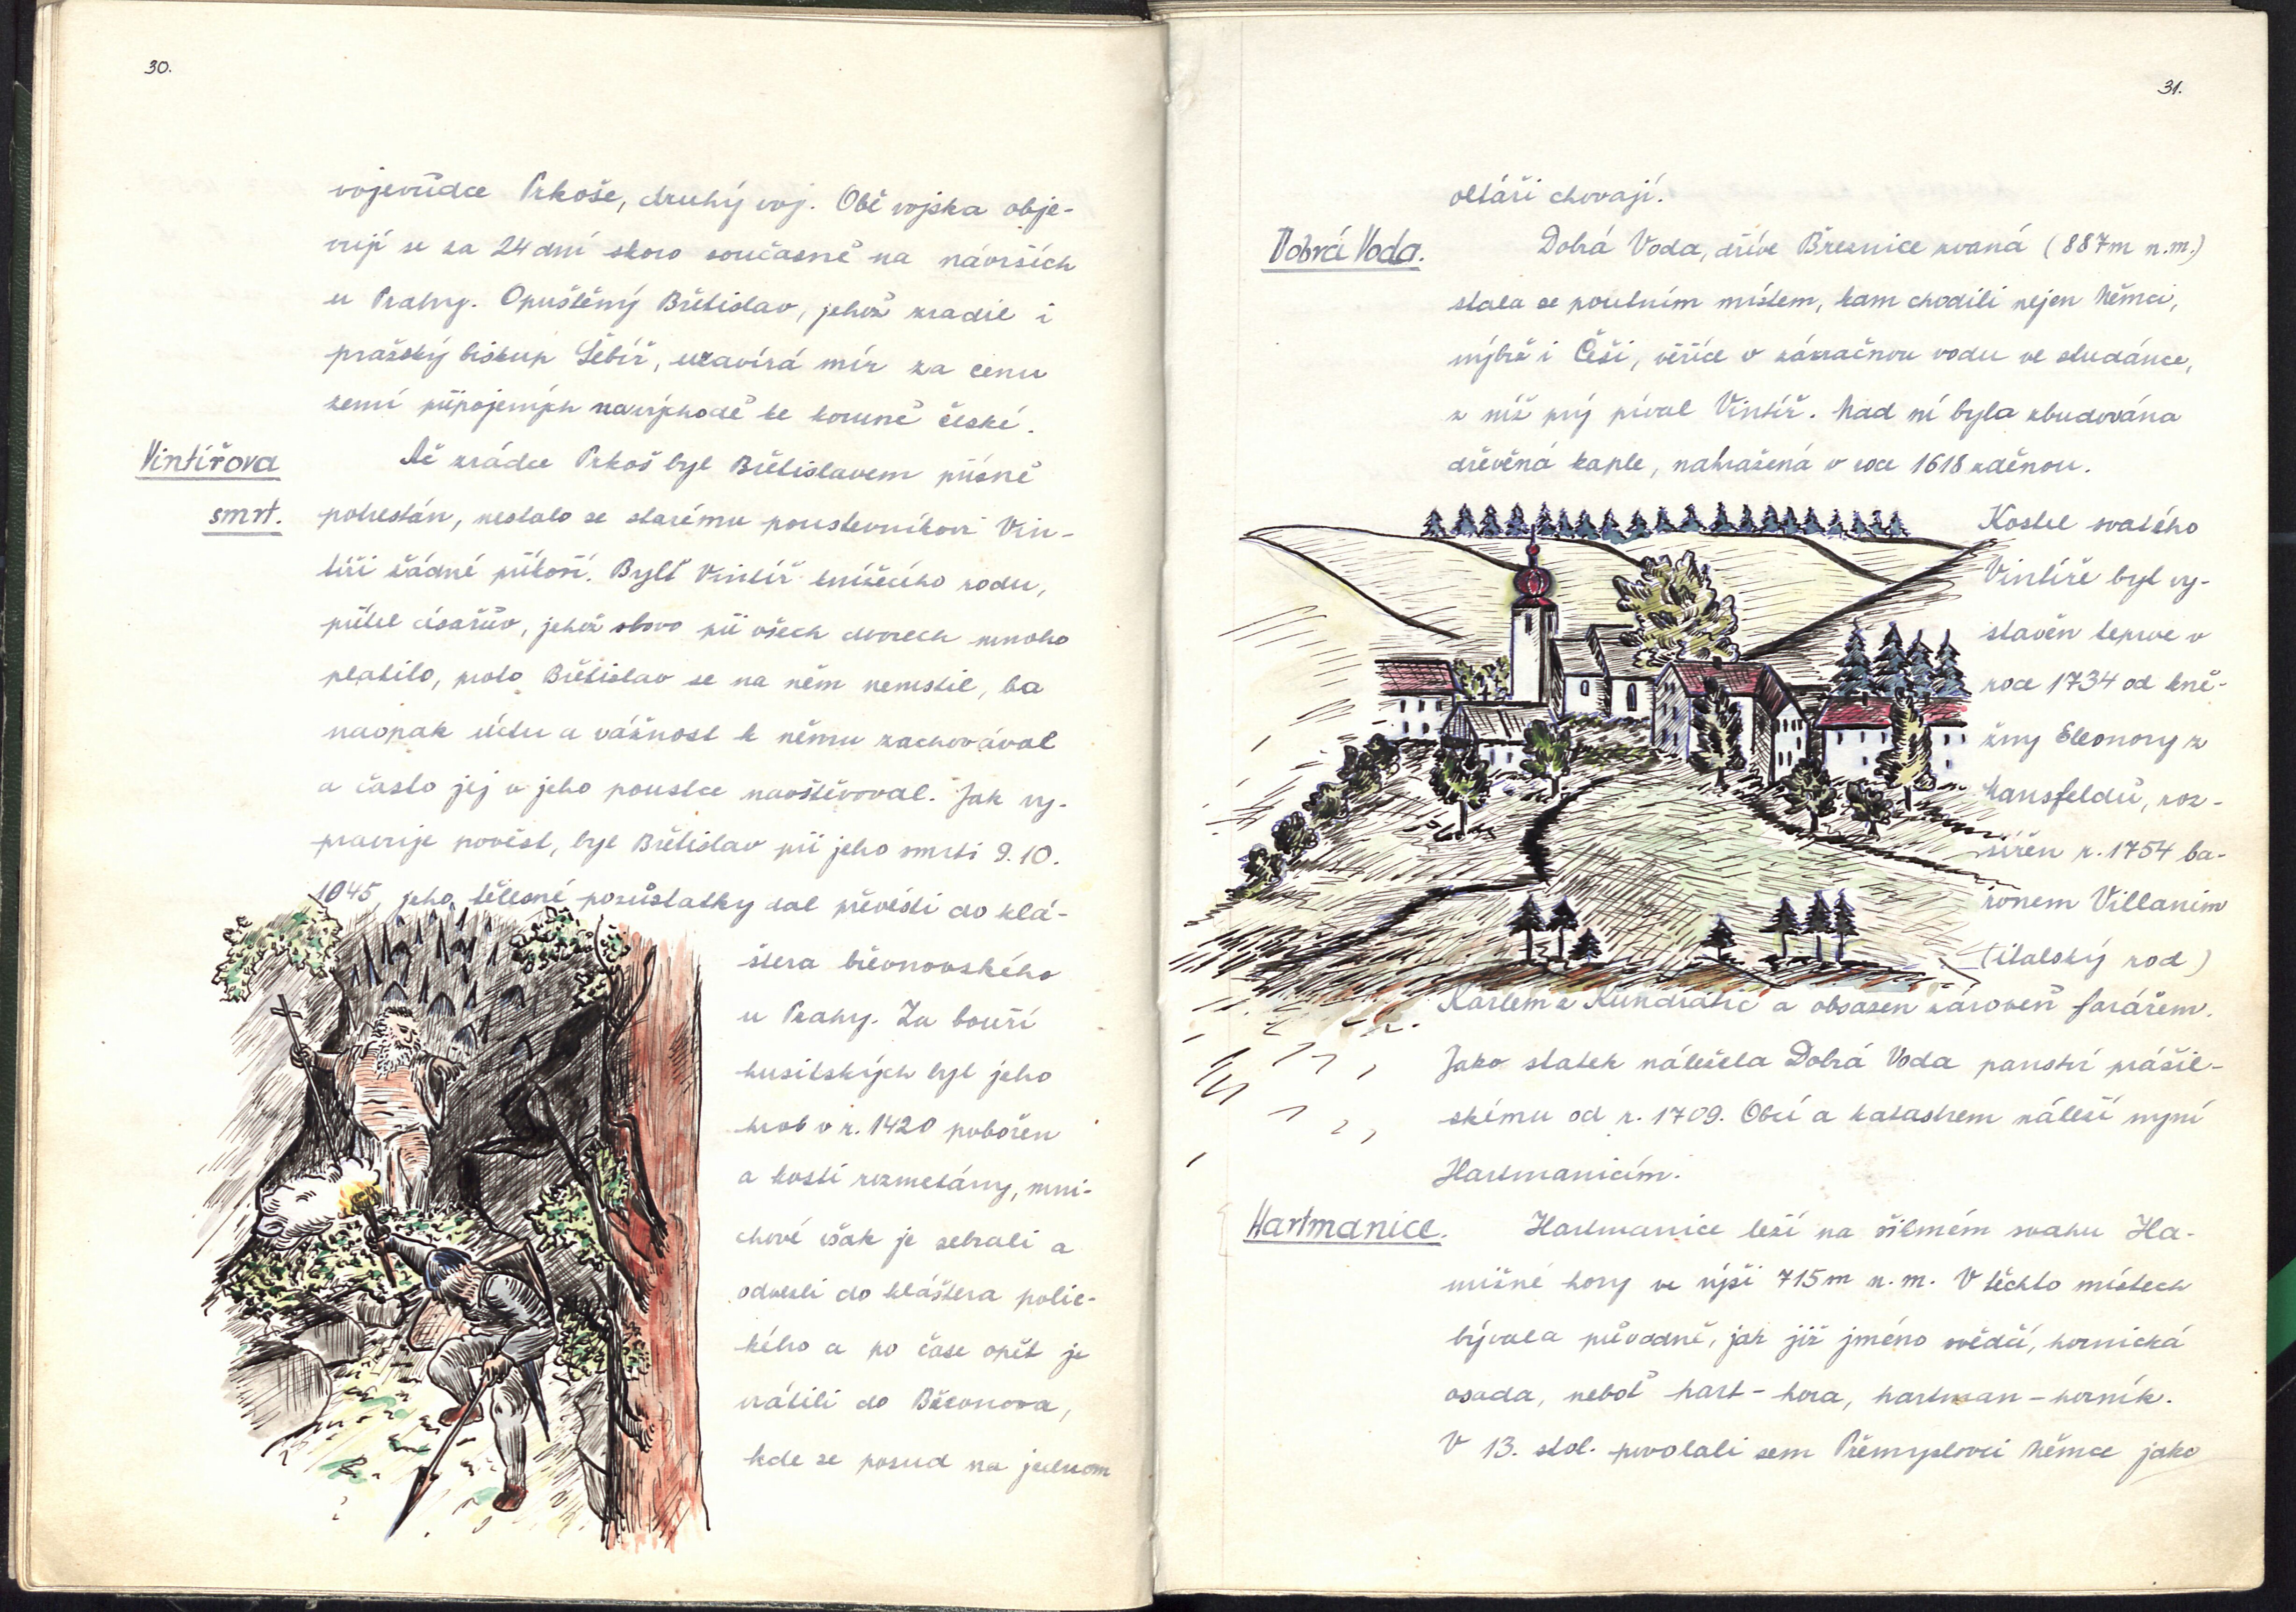 30.
vojevůdce Prkoše, druhý voj. Obě vojska obje-
vují se za 24 dní skoro současně na návrších
u Prahy. Opuštěný Břetislav, jehož zradil i
pražský biskup Šebíř, uzavírá mír za cenu
zemí připojených na východě ke koruně české.
Vintířova
smrt.
Ač zrádce Prkoš byl Břetislavem přísně
potrestán, nestalo se starému poustevníkovi Vin-
tíři žádné příkoří. Bylť Vintíř knížecího rodu,
přítel císařův, jehož slovo při všech dvorech mnoho
platilo, proto Břetislav se na něm nemstil, ba
naopak úctu a vážnost k němu zachovával
a často jej v jeho poustce navštěvoval. Jak vy-
pravuje pověst, byl Břetislav při jeho smrti 9. 10.
1045, jeho tělesné pozůstatky dal převésti do klá-
štera břevnovského
u Prahy. Za bouří
husitských byl jeho
hrob v r. 1420 pobořen
a kosti rozmetány, mni-
chové však je sebrali a
odvezli do kláštera polic-
kého a po čase opět je
vrátili do Břevnova,
kde se posud na jednom
31.
oltáři chovají.
Dobrá Voda.
Dobrá Voda, dříve Březnice zvaná (887m n.m.)
stala se poutním místem, kam chodili nejen Němci,
nýbrž i Češi, věříce v zázračnou vodu ve studánce,
z níž prý píval Vintíř. Nad ní byla zbudována
dřevěná kaple, nahražená v roce 1618 zděnou.
Kostel svatého
Vintíře byl vy-
stavěn teprve v
roce 1734 od kně-
žny Eleonory z
Mansfeldů, roz-
šířen r. 1754 ba-
ronem Villanim
(italský rod)
Karlem z Kundratic a obsazen zároveň farářem.
Jako statek náležela Dobrá Voda panství prášil-
skému od r. 1709. Obcí a katastrem náleží nyní
Hartmanicím.
Hartmanice.
Hartmanice leží na šikmém svahu Ha-
mižné hory ve výši 715m n. m. V těchto místech
bývala původně, jak již jméno svědčí, hornická
osada, neboť hart - hora, hartman - horník.
V 13. stol. povolali sem Přemyslovci Němce jako